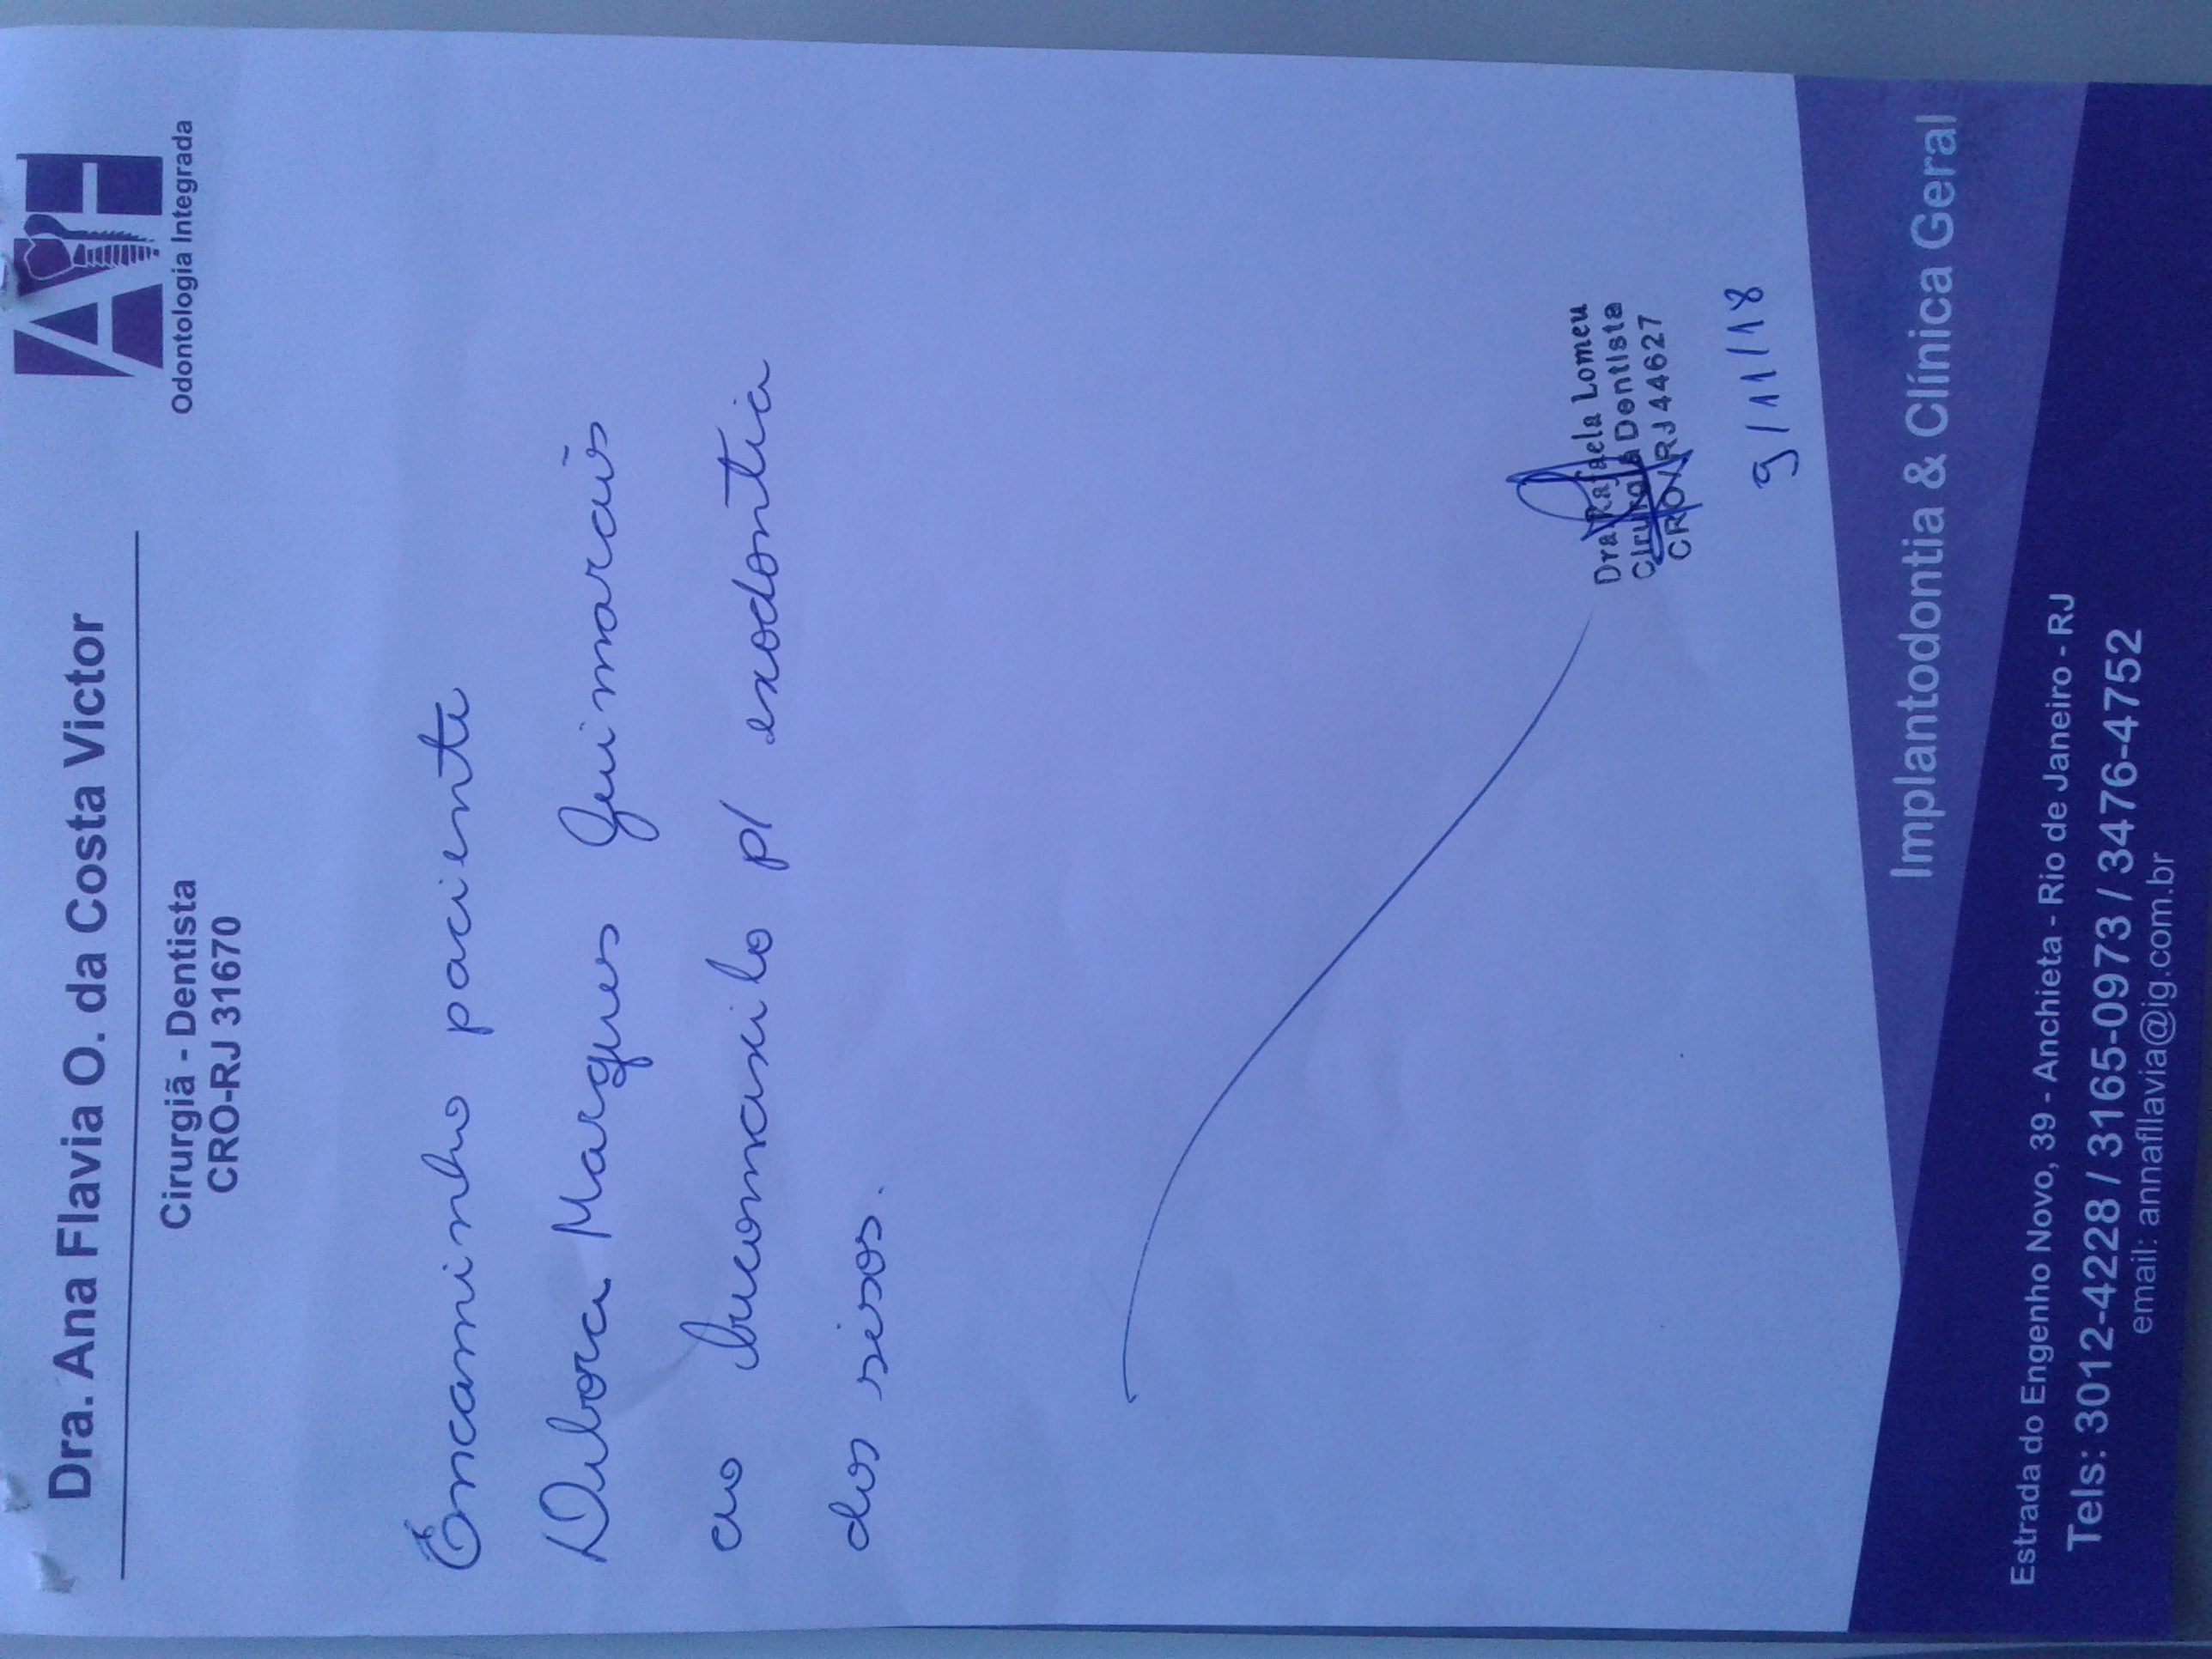 Dra. Ana Flavia O. da Costa Victor
Cirurgiã - Dentista
CRO-RJ 31670
AF
Odontologia Integrada
Encaminho paciente
Debora Marques Guimarães
ao bucomaxilo p/ exodontia
dos sisos.
Dra. Rafaela Lomeu
Cirurgiã Dentista
CRO/RJ 44627
9/11/18
Implantodontia & Clínica Geral
Estrada do Engenho Novo, 39 - Anchieta - Rio de Janeiro - RJ
Tels: 3012-4228 / 3165-0973 / 3476-4752
email: annafllavia@ig.com.br